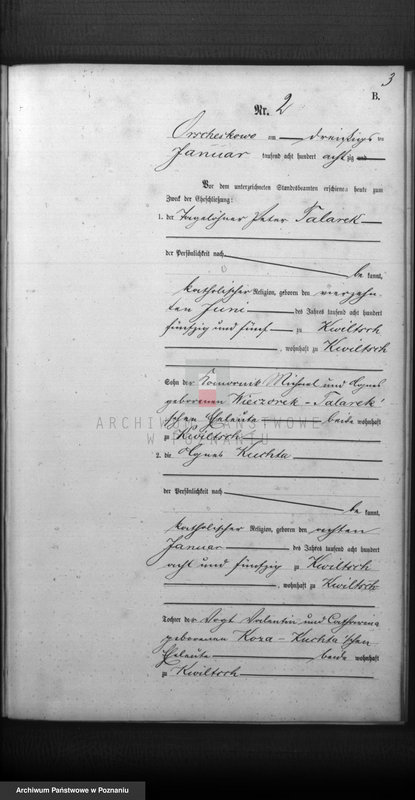 3
B.
Nr. 2
Orzeschkowo am dreißigs ten
Januar tausend acht hundert achtzig und
Vor dem unterzeichneten Standesbeamten erschienen heute zum
Zweck der Eheschließung:
1. der Tagelöhner Peter Talarek
der Persönlichkeit nach
be kannt,
katholischer Religion, geboren den vierzehn
ten Juni des Jahres tausend acht hundert
fünfzig und fünf zu Kwiltsch
, wohnhaft zu Kwiltsch
Sohn der Komornik Michael und Agnes
geborenen Wieczorek - Talarek'
schen Eheleute beide wohnhaft
zu Kwiltsch
2. die Agnes Kuchta
der Persönlichkeit nach
be kannt,
katholischer Religion, geboren den achten
Januar des Jahres tausend acht hundert
acht und fünfzig zu Kwiltsch
, wohnhaft zu Kwiltsch
Tochter der Vogt Valentin und Catharina
geborenen Koza - Kuchta'schen
Eheleute beide wohnhaft
zu Kwiltsch
ARCHIWUM PAŃSTWOWE
W POZNANIU
Archiwum Państwowe w Poznaniu